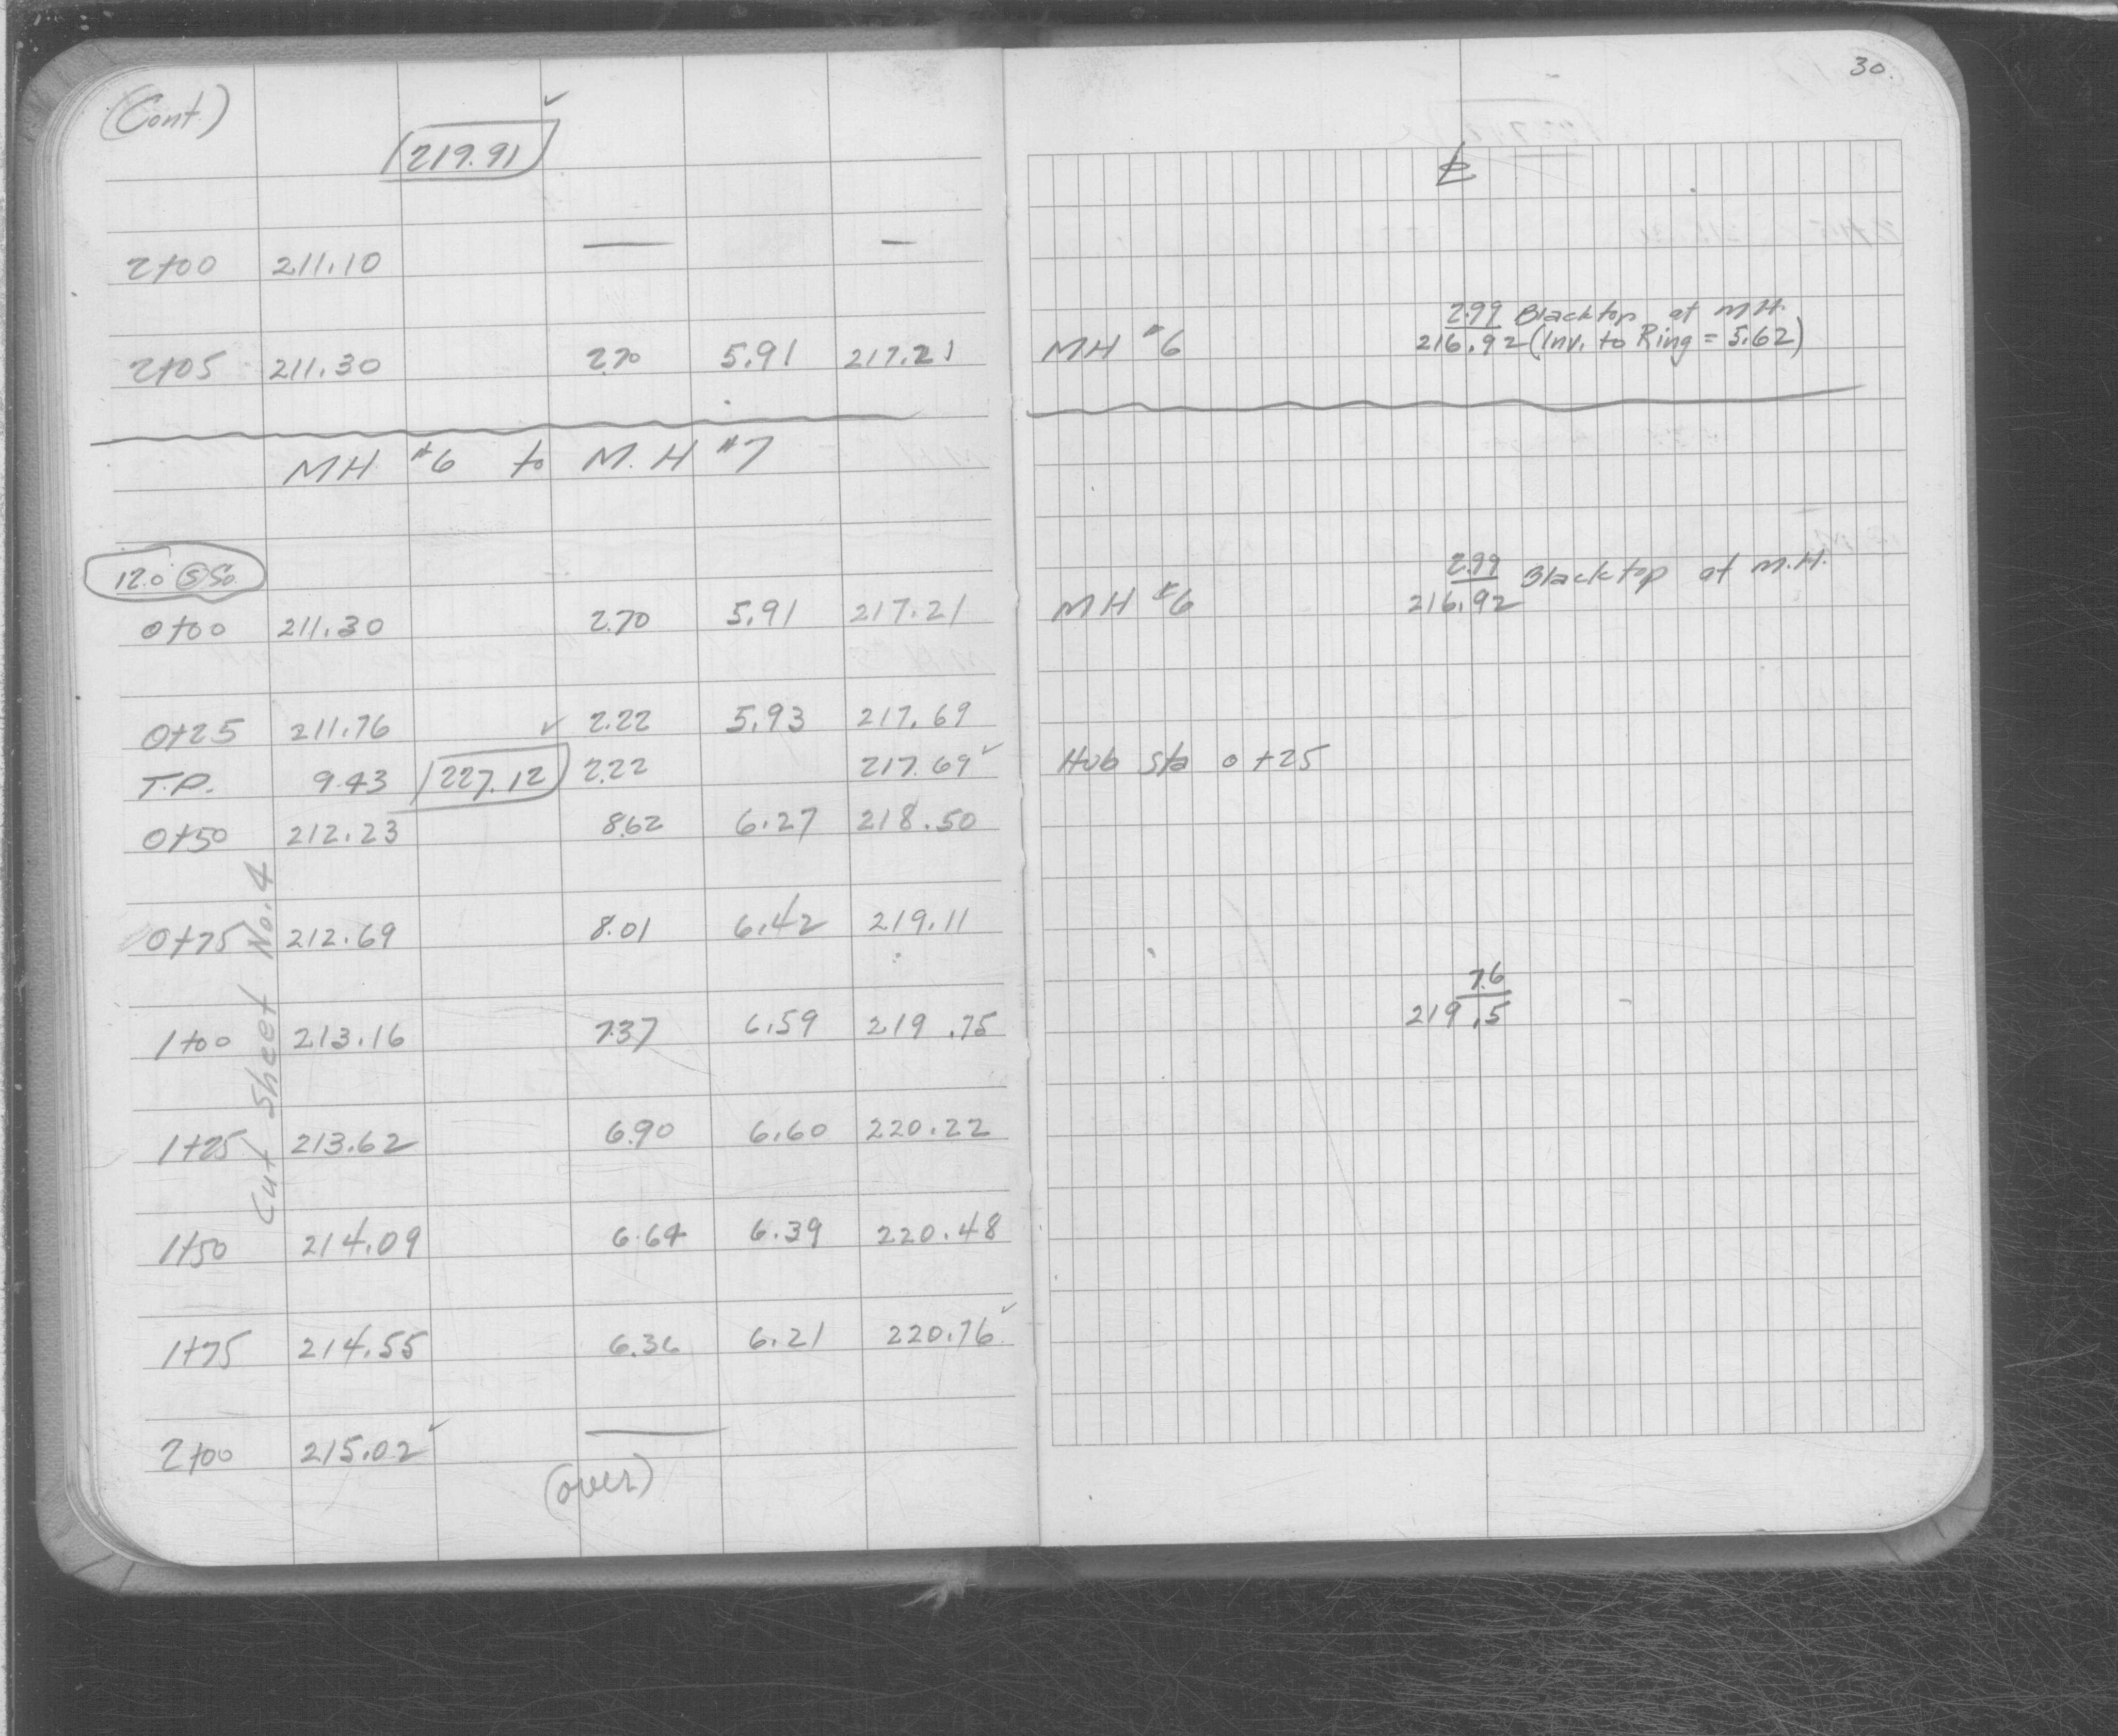 (Cont.)
219.91 ✓
2+00 211.10 — —
2+05 211.30 2.70 5.91 217.21
MH #6 to M.H #7
12.0 Ⓢ So.
0+00 211.30 2.70 5.91 217.21
0+25 211.76 ✓ 2.22 5.93 217.69
T.P. 9.43 227.12 2.22 217.69 ✓
0+50 212.23 8.62 6.27 218.50
0+75 212.69 8.01 6.42 219.11
1+00 213.16 7.37 6.59 219.75
1+25 213.62 6.90 6.60 220.22
1+50 214.09 6.64 6.39 220.48
1+75 214.55 6.36 6.21 220.76 ✓
2+00 215.02 ✓ —
(over)
Cut Sheet No. 4
30.
℄
2.99 Blacktop at MH.
MH #6 216.92 (Inv. to Ring = 5.62)
2.99 Blacktop at M.H.
MH #6 216.92
Hub Sta 0+25
7.6
219.5